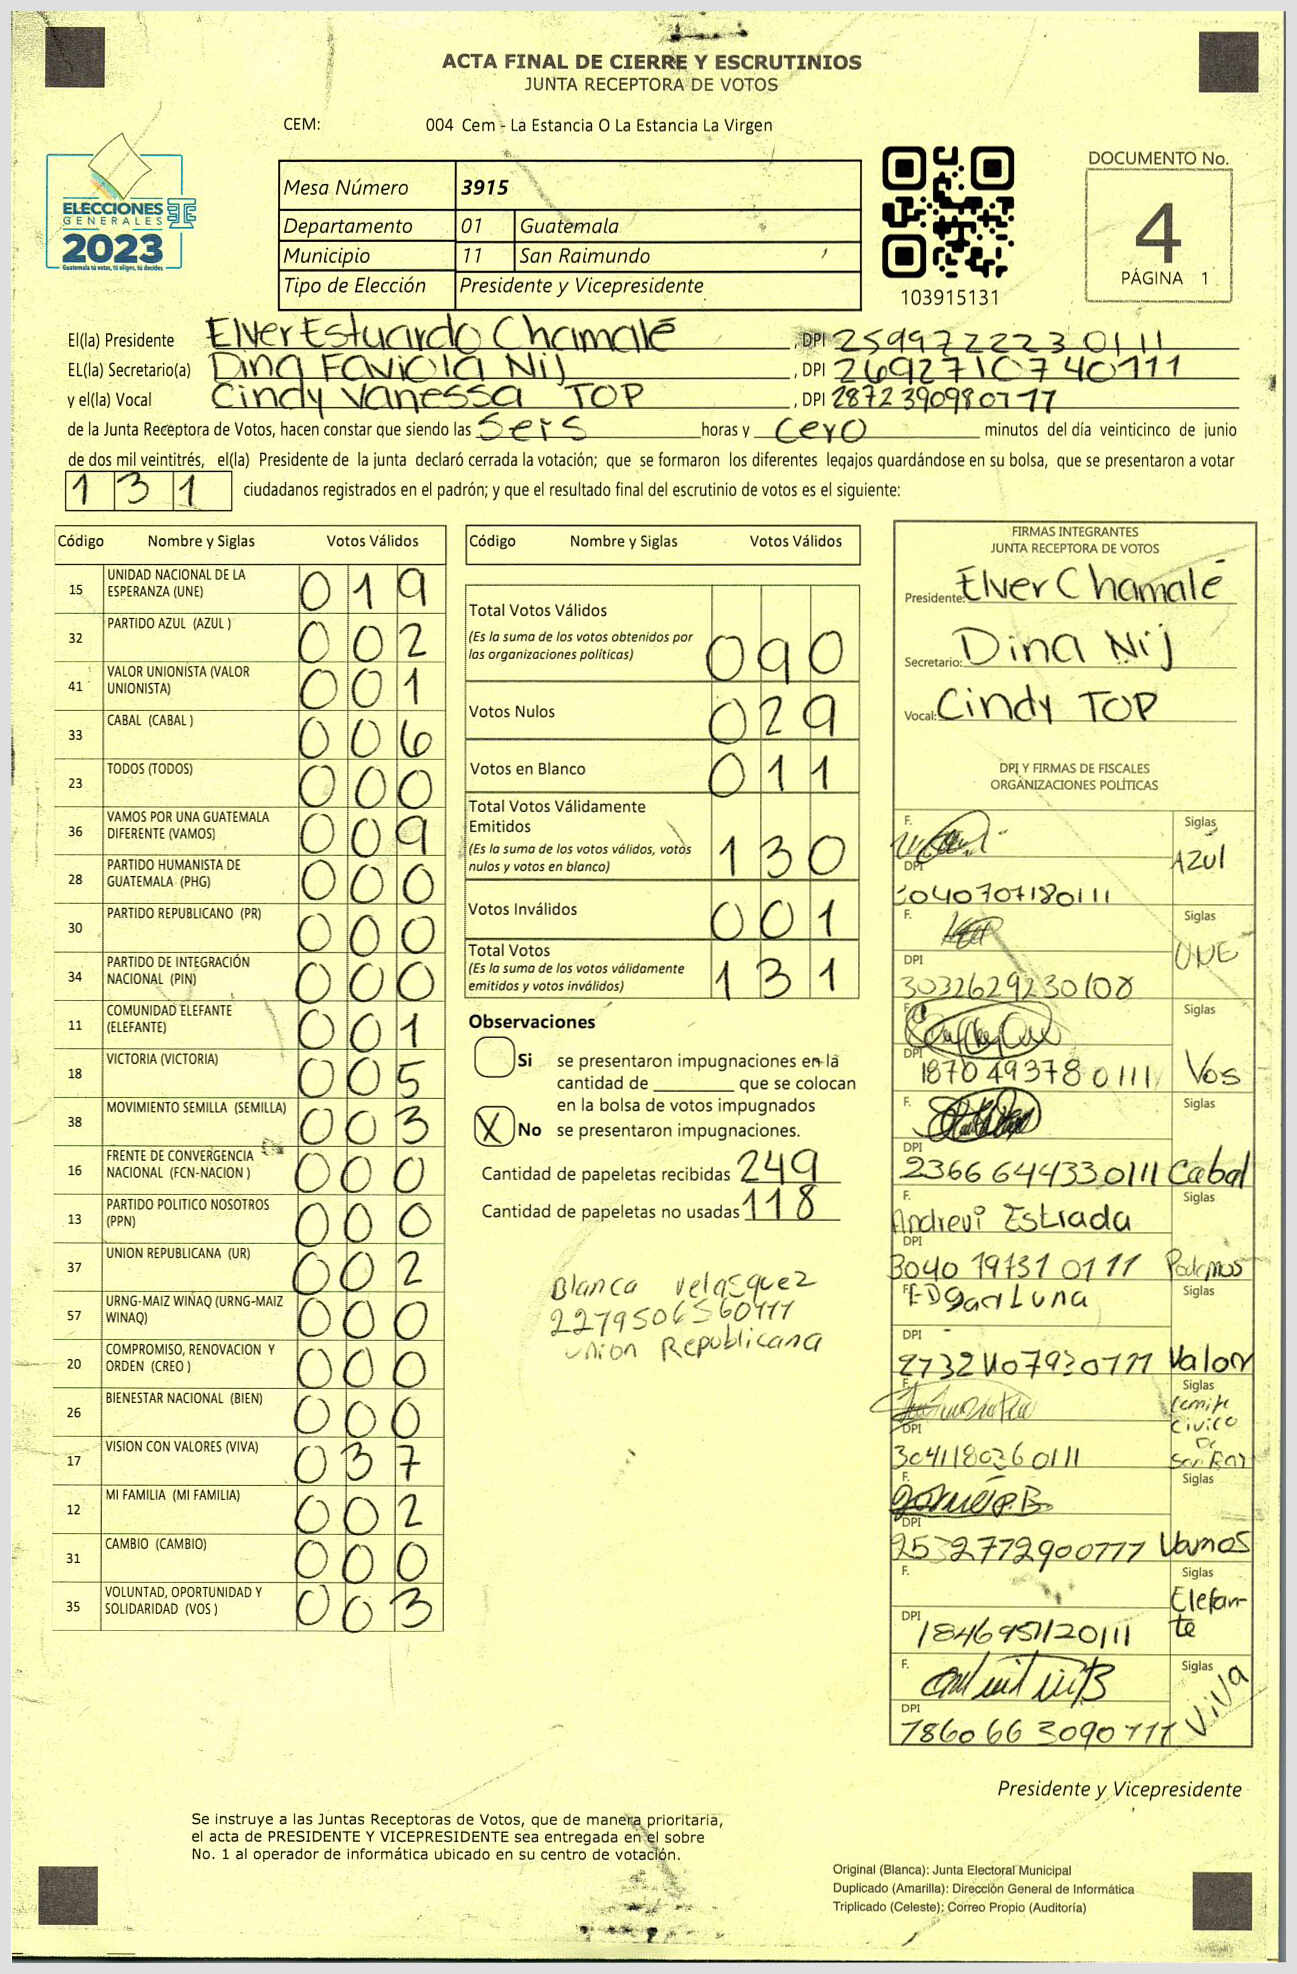 ACTA FINAL DE CIERRE Y ESCRUTINIOS
JUNTA RECEPTORA DE VOTOS
CEM: 004 Cem - La Estancia O La Estancia La Virgen
ELECCIONES
GENERALES
2023
Guatemala tú votas, tú eliges, tú decides
Mesa Número 3915
Departamento 01 Guatemala
Municipio 11 San Raimundo
Tipo de Elección Presidente y Vicepresidente
103915131
DOCUMENTO No.
4
PÁGINA 1
El(la) Presidente Elver Estuardo Chamalé , DPI 2599722230111
EL(la) Secretario(a) Dina Faviola Nij , DPI 2692710740111
y el(la) Vocal Cindy Vanessa TOP , DPI 2872390980111
de la Junta Receptora de Votos, hacen constar que siendo las Seis horas y cero minutos del día veinticinco de junio
de dos mil veintitrés, el(la) Presidente de la junta declaró cerrada la votación; que se formaron los diferentes legajos quardándose en su bolsa, que se presentaron a votar
131 ciudadanos registrados en el padrón; y que el resultado final del escrutinio de votos es el siguiente:
Código Nombre y Siglas Votos Válidos
15 UNIDAD NACIONAL DE LA ESPERANZA (UNE) 019
32 PARTIDO AZUL (AZUL ) 002
41 VALOR UNIONISTA (VALOR UNIONISTA) 001
33 CABAL (CABAL ) 006
23 TODOS (TODOS) 000
36 VAMOS POR UNA GUATEMALA DIFERENTE (VAMOS) 009
28 PARTIDO HUMANISTA DE GUATEMALA (PHG) 000
30 PARTIDO REPUBLICANO (PR) 000
34 PARTIDO DE INTEGRACIÓN NACIONAL (PIN) 000
11 COMUNIDAD ELEFANTE (ELEFANTE) 001
18 VICTORIA (VICTORIA) 005
38 MOVIMIENTO SEMILLA (SEMILLA) 003
16 FRENTE DE CONVERGENCIA NACIONAL (FCN-NACION ) 000
13 PARTIDO POLITICO NOSOTROS (PPN) 000
37 UNION REPUBLICANA (UR) 002
57 URNG-MAIZ WINAQ (URNG-MAIZ WINAQ) 000
20 COMPROMISO, RENOVACION Y ORDEN (CREO ) 000
26 BIENESTAR NACIONAL (BIEN) 000
17 VISION CON VALORES (VIVA) 037
12 MI FAMILIA (MI FAMILIA) 002
31 CAMBIO (CAMBIO) 000
35 VOLUNTAD, OPORTUNIDAD Y SOLIDARIDAD (VOS ) 003
Código Nombre y Siglas Votos Válidos
Total Votos Válidos 090
(Es la suma de los votos obtenidos por
las organizaciones políticas)
Votos Nulos 029
Votos en Blanco 011
Total Votos Válidamente
Emitidos 130
(Es la suma de los votos válidos, votos
nulos y votos en blanco)
Votos Inválidos 001
Total Votos 131
(Es la suma de los votos válidamente
emitidos y votos inválidos)
Observaciones
Si se presentaron impugnaciones en la
cantidad de ________ que se colocan
en la bolsa de votos impugnados
X No se presentaron impugnaciones.
Cantidad de papeletas recibidas 249
Cantidad de papeletas no usadas 118
Blanca Velasquez
2279506560111
Union Republicana
FIRMAS INTEGRANTES
JUNTA RECEPTORA DE VOTOS
Presidente: Elver Chamalé
Secretario: Dina Nij
Vocal: Cindy TOP
DPI Y FIRMAS DE FISCALES
ORGANIZACIONES POLÍTICAS
F. Siglas
AZUl
DPI
F. Siglas
UNE
DPI
3032629230108
F. Siglas
DPI
1870493780111 Vos
F. Siglas
DPI
2366644330111 Cabal
F. Siglas
Andrevi Estrada
DPI
3040197310111 Podemos
F. EDgar Luna Siglas
DPI
2732407930111 Valor
F. Siglas
Comite
Civico
De
DPI
3041180260111
F. Siglas
DPI
Vamos
F. Siglas
Elefan-
te
DPI
1846951120111
F. Siglas
ViVa
DPI
7860663090111
Presidente y Vicepresidente
Se instruye a las Juntas Receptoras de Votos, que de manera prioritaria,
el acta de PRESIDENTE Y VICEPRESIDENTE sea entregada en el sobre
No. 1 al operador de informática ubicado en su centro de votación.
Original (Blanca): Junta Electoral Municipal
Duplicado (Amarilla): Dirección General de Informática
Triplicado (Celeste): Correo Propio (Auditoría)